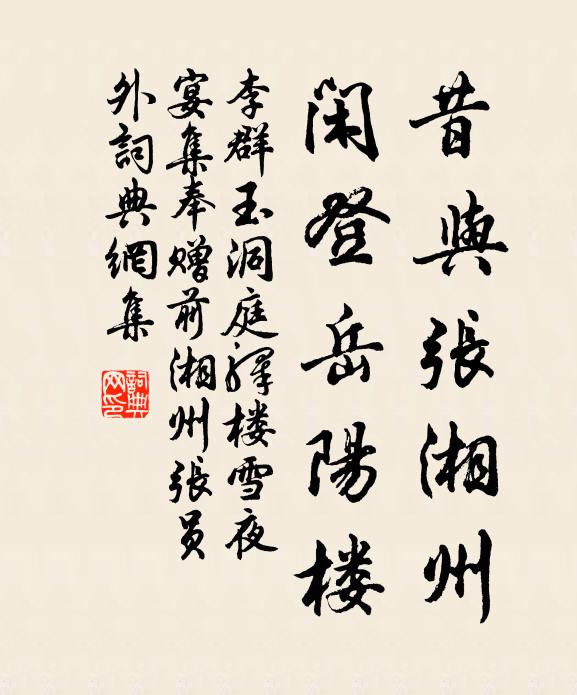 昔與張湘州
闲登岳陽楼
李群玉洞庭驛楼雪夜
宴集奉赠前湘州張员
外詞典網集
詞典网印